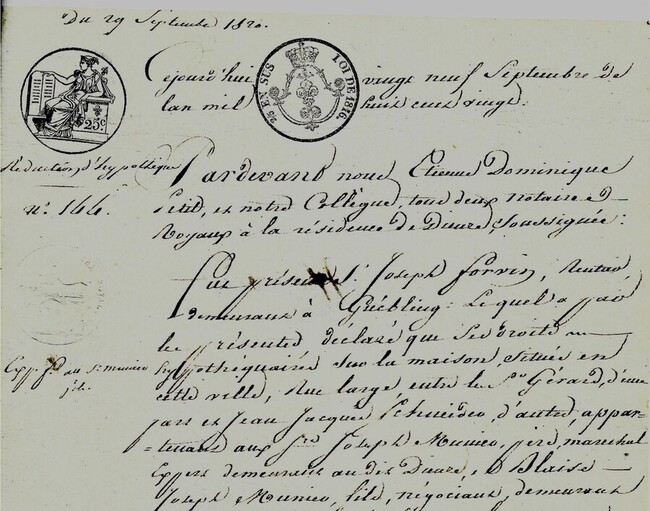 Du 29 Septembre 1820.
Cejourd'hui vingt neuf Septembre de
lan mil huit cent vingt.
25c
EN SUS LOI DE 1816
Reduction d'hypothèque
n°. 144.
Pardevant nous Etienne Dominique
Petit, et notre Collègue, tous deux notaires
Royaux à la résidence de Dieuze soussignés:
Fut présent Sr. Joseph
demeurant à Guébling: Lequel a par
les présentes déclaré que ses droits
hypothéquaires sur la maison, située en
cette ville, Rue large, entre le Sr. Gérard, d'une
part et Jean Jacques Schneider, d'autre, appar-
-tenant aux Srs. Joseph Munier, père, marechal
Expert demeurant au dit Dieuze, et Blaise
Joseph Munier, fils, négociant, demeurant
Exp. au Sr. munier